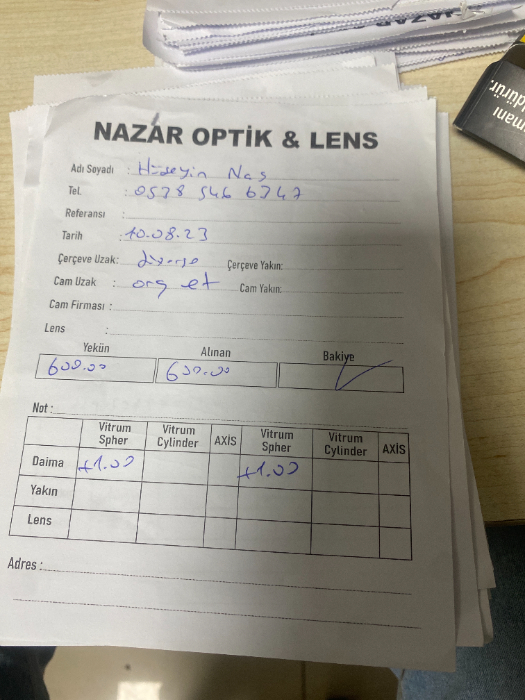 NAZAR OPTİK & LENS
Adı Soyadı : Hüseyin Nas
Tel. : 0538 546 6347
Referansı :
Tarih : 10.08.23
Çerçeve Uzak: diverso Çerçeve Yakın:
Cam Uzak : org et Cam Yakın:
Cam Firması :
Lens :
Yekün Alınan Bakiye
600.00 600.00
Not :
Vitrum Spher Vitrum Cylinder AXİS Vitrum Spher Vitrum Cylinder AXİS
Daima +1.00 +1.00
Yakın
Lens
Adres :